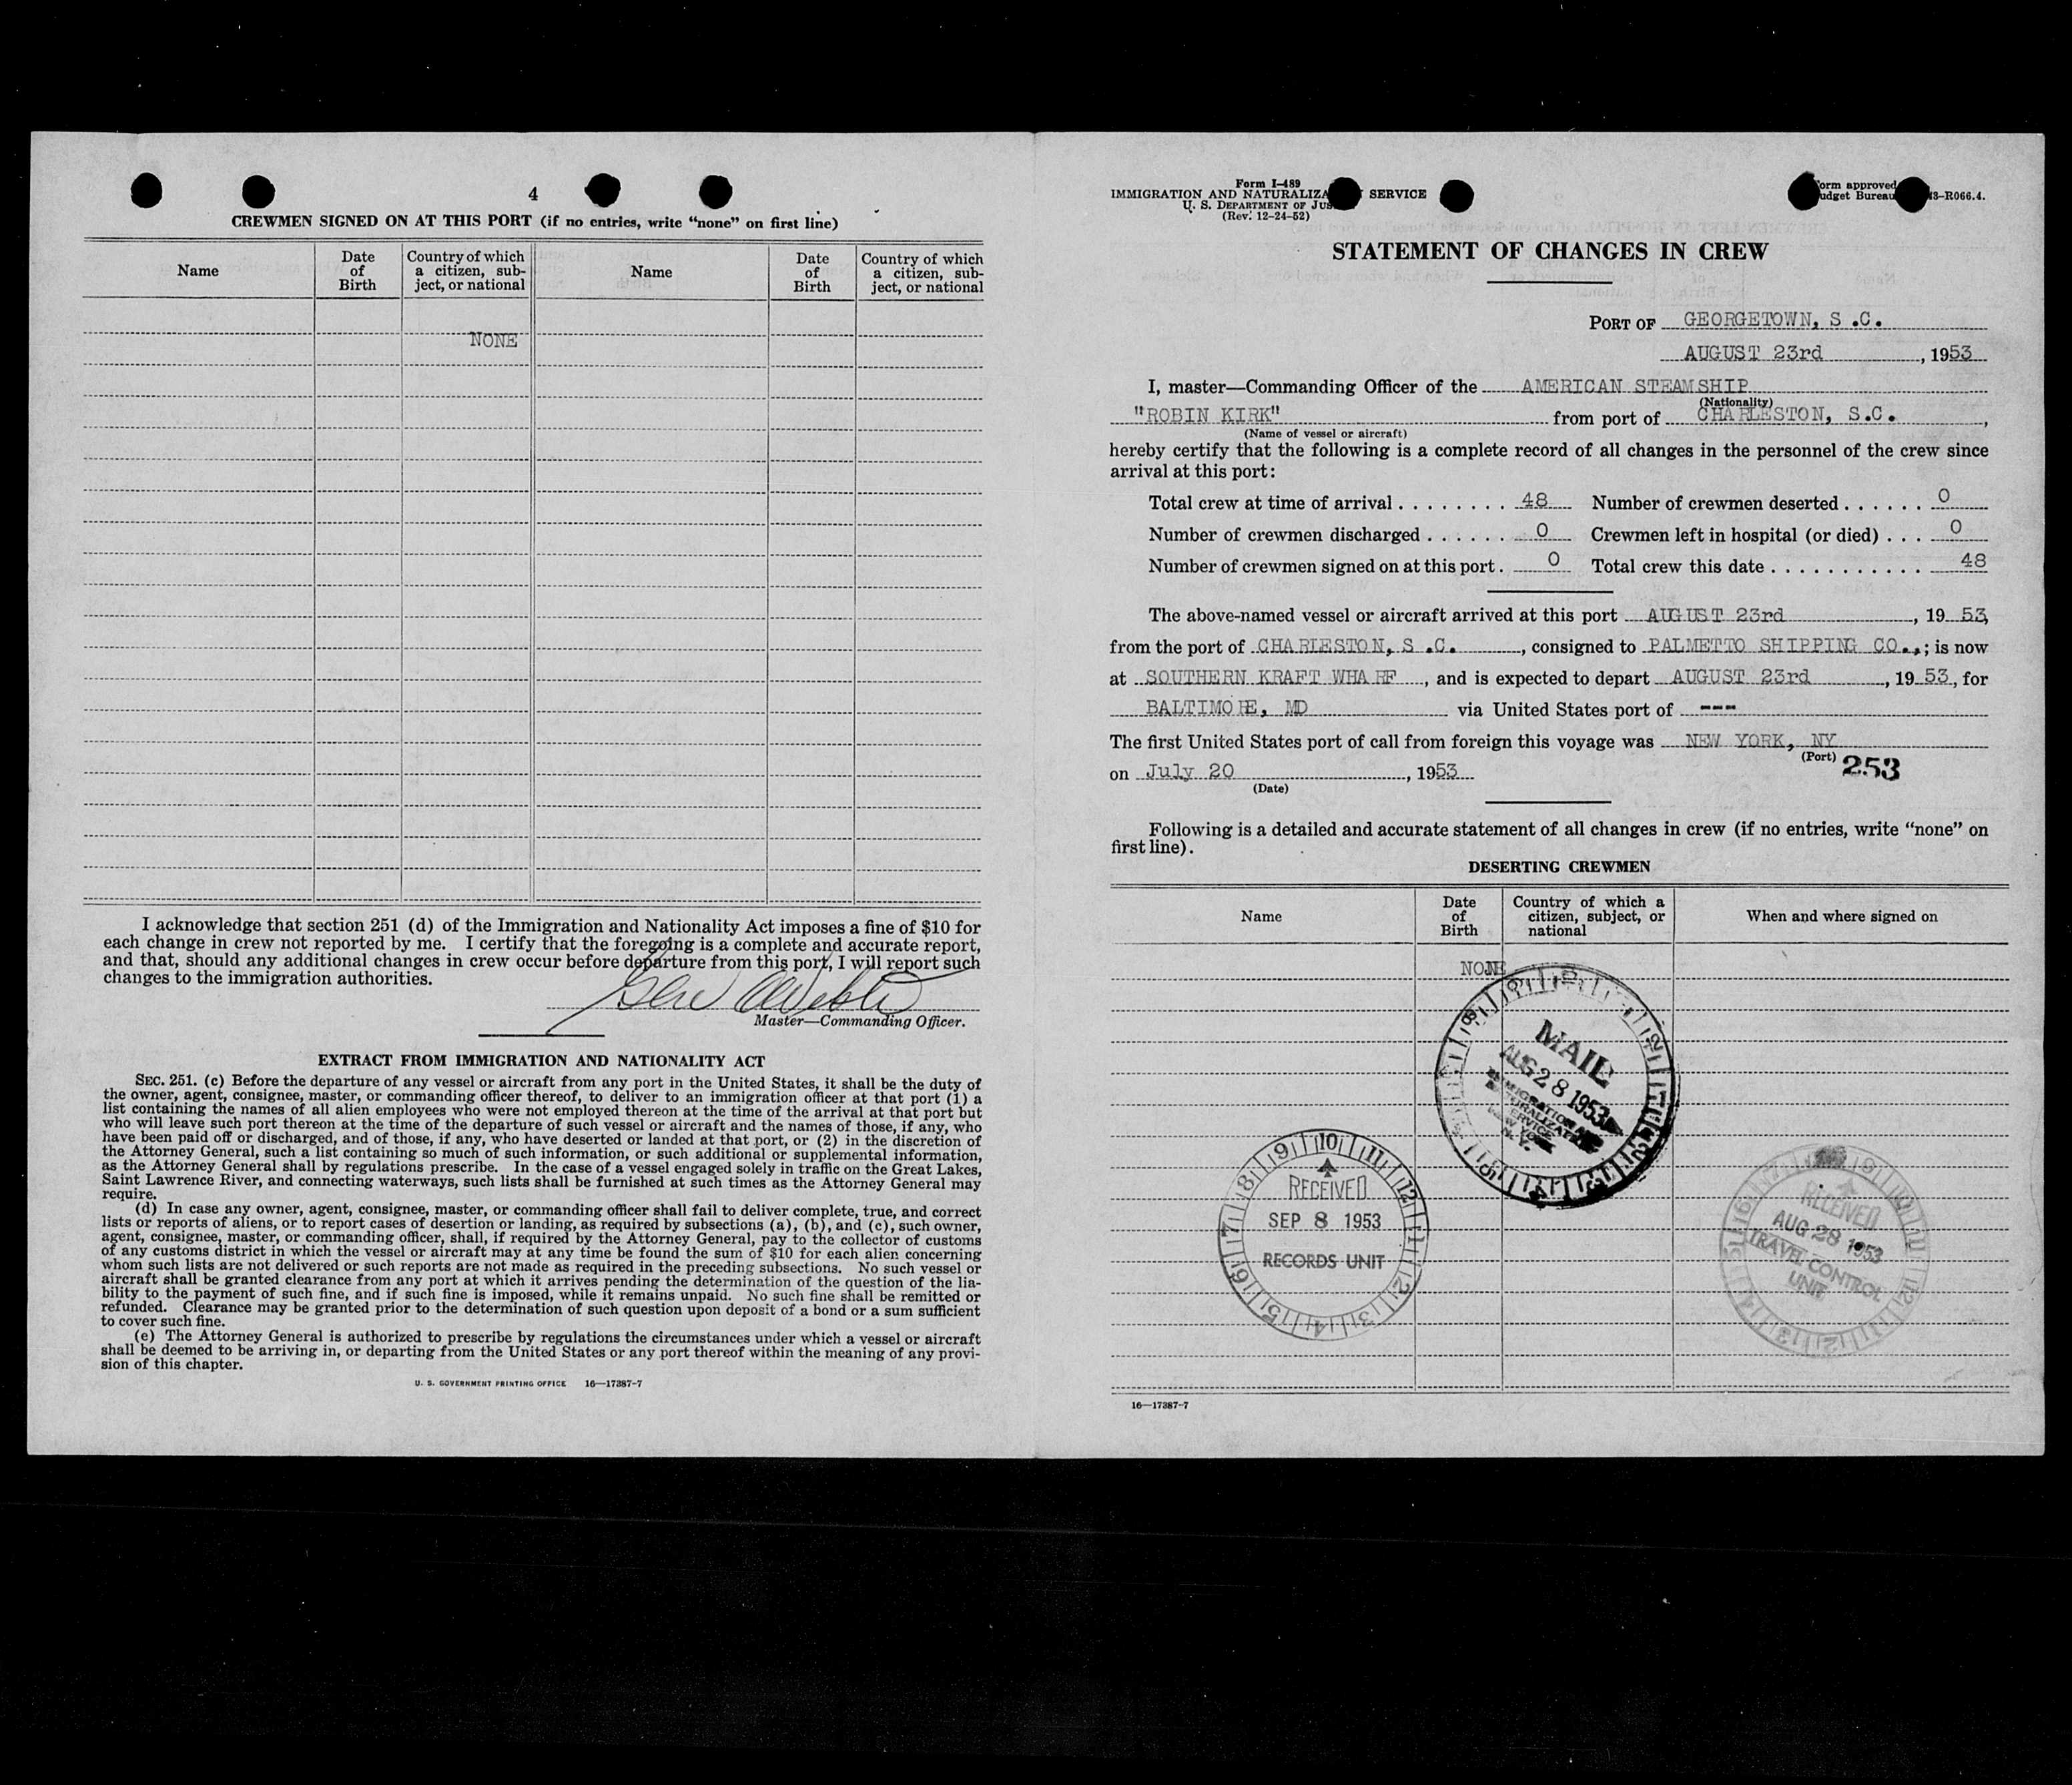 4
CREWMEN SIGNED ON AT THIS PORT (if no entries, write “none” on first line)
Name
Date of Birth
Country of which a citizen, sub-ject, or national
Name
Date of Birth
Country of which a citizen, sub-ject, or national
NONE
I acknowledge that section 251 (d) of the Immigration and Nationality Act imposes a fine of $10 for
each change in crew not reported by me. I certify that the foregoing is a complete and accurate report,
and that, should any additional changes in crew occur before departure from this port, I will report such
changes to the immigration authorities.
Master—Commanding Officer.
EXTRACT FROM IMMIGRATION AND NATIONALITY ACT
SEC. 251. (c) Before the departure of any vessel or aircraft from any port in the United States, it shall be the duty of
the owner, agent, consignee, master, or commanding officer thereof, to deliver to an immigration officer at that port (1) a
list containing the names of all alien employees who were not employed thereon at the time of the arrival at that port but
who will leave such port thereon at the time of the departure of such vessel or aircraft and the names of those, if any, who
have been paid off or discharged, and of those, if any, who have deserted or landed at that port, or (2) in the discretion of
the Attorney General, such a list containing so much of such information, or such additional or supplemental information,
as the Attorney General shall by regulations prescribe. In the case of a vessel engaged solely in traffic on the Great Lakes,
Saint Lawrence River, and connecting waterways, such lists shall be furnished at such times as the Attorney General may
require.
(d) In case any owner, agent, consignee, master, or commanding officer shall fail to deliver complete, true, and correct
lists or reports of aliens, or to report cases of desertion or landing, as required by subsections (a), (b), and (c), such owner,
agent, consignee, master, or commanding officer, shall, if required by the Attorney General, pay to the collector of customs
of any customs district in which the vessel or aircraft may at any time be found the sum of $10 for each alien concerning
whom such lists are not delivered or such reports are not made as required in the preceding subsections. No such vessel or
aircraft shall be granted clearance from any port at which it arrives pending the determination of the question of the lia-
bility to the payment of such fine, and if such fine is imposed, while it remains unpaid. No such fine shall be remitted or
refunded. Clearance may be granted prior to the determination of such question upon deposit of a bond or a sum sufficient
to cover such fine.
(e) The Attorney General is authorized to prescribe by regulations the circumstances under which a vessel or aircraft
shall be deemed to be arriving in, or departing from the United States or any port thereof within the meaning of any provi-
sion of this chapter.
U. S. GOVERNMENT PRINTING OFFICE 16—17387-7
Form I-489
IMMIGRATION AND NATURALIZA SERVICE
U. S. DEPARTMENT OF JUS
(Rev. 12-24-52)
orm approved
udget Bureau 3-R066.4.
STATEMENT OF CHANGES IN CREW
PORT OF GEORGETOWN, S .C.
AUGUST 23rd, 1953
I, master—Commanding Officer of the AMERICAN STEAMSHIP
(Nationality)
"ROBIN KIRK" from port of CHARLESTON, S.C.,
(Name of vessel or aircraft)
hereby certify that the following is a complete record of all changes in the personnel of the crew since
arrival at this port:
Total crew at time of arrival ........ 48 Number of crewmen deserted ...... 0
Number of crewmen discharged ...... 0 Crewmen left in hospital (or died) ... 0
Number of crewmen signed on at this port. 0 Total crew this date ........... 48
The above-named vessel or aircraft arrived at this port AUGUST 23rd, 19 53,
from the port of CHARLESTON, S .C., consigned to PALMETTO SHIPPING CO.,; is now
at SOUTHERN KRAFT WHARF, and is expected to depart AUGUST 23rd, 19 53, for
BALTIMORE, MD via United States port of ---
The first United States port of call from foreign this voyage was NEW YORK, NY
(Port)
253
on July 20, 1953
(Date)
Following is a detailed and accurate statement of all changes in crew (if no entries, write “none” on
first line).
DESERTING CREWMEN
Name
Date of Birth
Country of which a citizen, subject, or national
When and where signed on
NONE
MAIL
AUG 28 1953
RECEIVED
SEP 8 1953
RECORDS UNIT
RECEIVED
AUG 28 1953
TRAVEL CONTROL
UNIT
16—17387-7